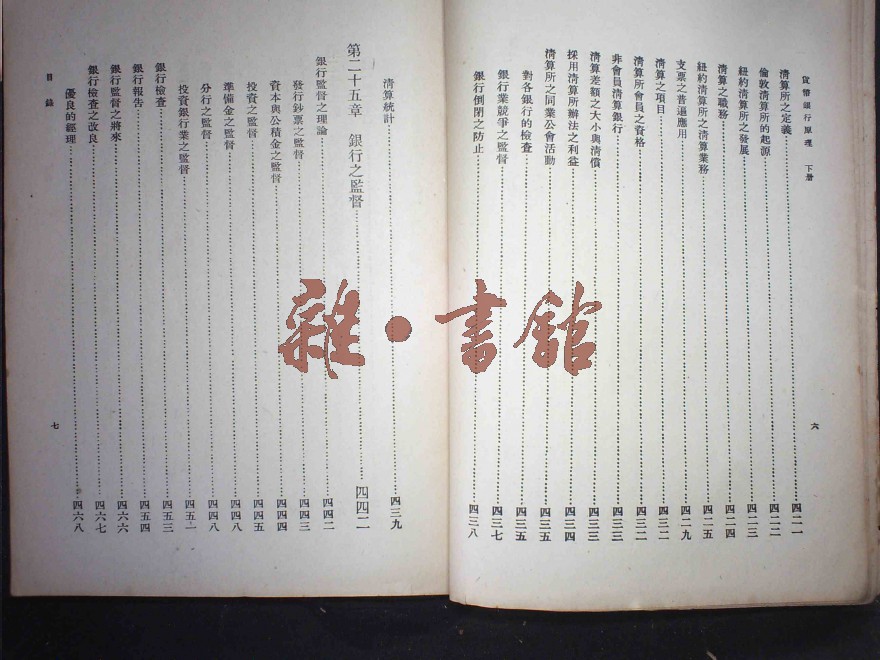 貨幣銀行原理 下册
六
清算所之定義 四二一
倫敦清算所的起源 四二二
紐約清算所之發展 四二三
清算之職務 四二四
紐約清算所之清算業務 四二五
支票之普遍應用 四二九
清算之項目 四三二
清算所會員之資格 四三二
非會員清算銀行 四三三
清算差額之大小與清償 四三三
採用清算所辦法之利益 四三四
清算所之同業公會活動 四三五
對各銀行的檢查 四三五
銀行業競爭之監督 四三七
銀行倒閉之防止 四三八
清算統計 四三九
第二十五章 銀行之監督 四四二
銀行監督之理論 四四二
發行鈔票之監督 四四三
資本與公積金之監督 四四四
投資之監督 四四五
準備金之監督 四四八
分行之監督 四四八
投資銀行業之監督 四五一
銀行檢查 四五三
銀行報告 四五四
銀行監督之將來 四六六
銀行檢查之改良 四六七
優良的經理 四六八
目錄
七
雜·書館